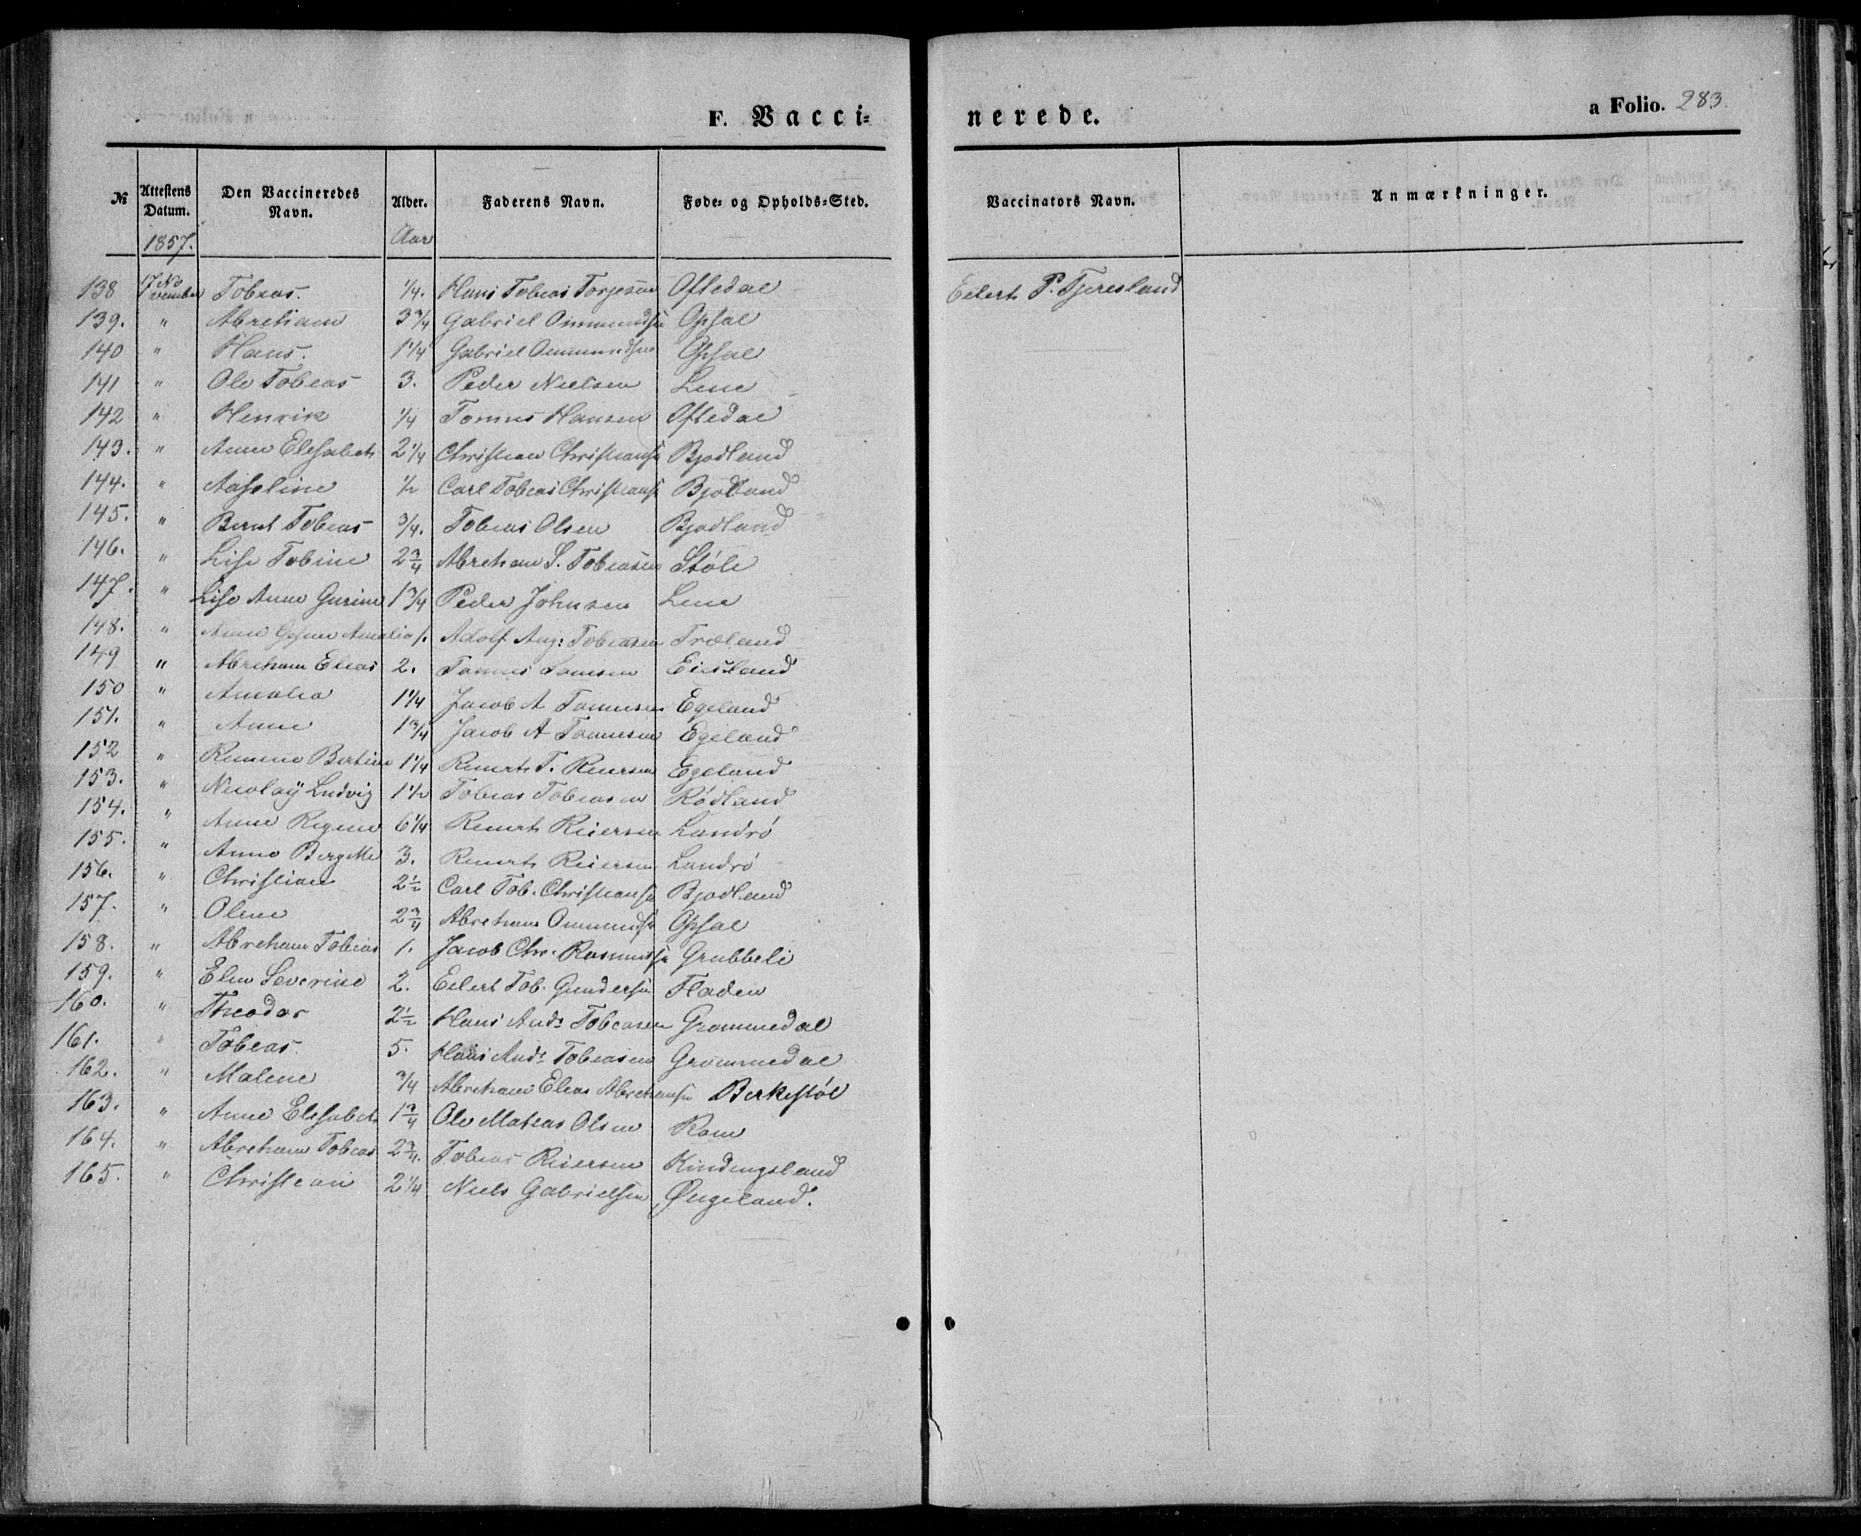 F. Vacci=
nerede.
a Folio. 283.
№ Attestens Datum. Den Vaccineredes Navn. Alder. Faderens Navn. Føde= og Opholds=Sted. Vaccinators Navn. Anmærkninger.
1857. Aar
138 17 November Tobias. 1/4. Hans Tobias Torjesen Oftedal Eilert P. Tjersland
139. " Abraham 3 3/4 Gabriel Ommundsn Opsal
140 " Hans. 1 1/4 Gabriel Ommundsen Opsal
141 " Ole Tobias 3. Peder Nielsen Lene
142 " Henrik 1/4 Tønnes Hansen Oftedal
143. " Anne Elisabeth 2 1/4 Christian Christiansn Bjodland
144. " Aaseline 1/2 Carl Tobias Christiansn Bjodland
145. " Bernt Tobias 3/4. Tobias Olsen Bjodland
146. " Lise Tobine 2 3/4 Abraham S. Tobiasen Støle
147. " Lise Anne Gurine 1 3/4 Peder Johnsen Lene
148. " Anne Amalia Adolf Aug: Tobiasen Træland
149 " Abraham Elias 2. Tønnes Eiesland
150 " Amalia 1 1/4 Jacob A Tønnesen Egeland
151. " Anne 1 3/4 Jacob A Tønnesen Egeland
152 " Bertine 1 1/4 Reinert T. Reiersen Egeland
153. " Nicolaÿ Ludvig 1 1/2 Tobias Tobiasen Rødland
154. " Anne Regine 6 1/4 Reinert Reiersen Landrø
155. " Anne Bergitte 3. Reinert Reiersen Landrø
156. " Christian 2 1/2 Carl Tob. Christiansn Bjodland
157. " Oline 2 3/4 Abraham Ommundsn Opsal
158. " Abraham Tobias 1. Jacob Chr. Rasmussn Grubbeli
159. " Elen Severine 2. Eilert Tob. Gundersn Fladen
160. " Theodor 2 1/2 Hans Andr Tobiasen Grommedal
161. " Tobias 5. Hans Andr Tobiasen Grommedal
162. " Malene 3/4 Abraham Elias Abrahamsn Berkestøl
163. " Anne Elisabeth 1 3/4 Ole Matias Olsen Rom
164. " Abraham Tobias 2 3/4. Tobias Reiersen Kindingsland
165. " Christian 2 1/4 Niels Gabrielsen Øngeland.